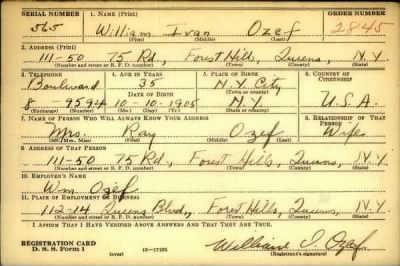 SERIAL NUMBER 1. NAME (Print) ORDER NUMBER
565 William Ivan Ozef 2845
(First) (Middle) (Last)
2. ADDRESS (Print)
111-50 75 Rd., Forest Hills, Queens, N.Y.
(Number and street or R. F. D. number) (Town) (County) (State)
3. TELEPHONE 4. AGE IN YEARS 5. PLACE OF BIRTH 6. COUNTRY OF CITIZENSHIP
Boulevard 35 N.Y. City
DATE OF BIRTH (Town or county)
8-9594 10-10-1905 N.Y. U.S.A.
(Exchange) (Number) (Mo.) (Day) (Yr.) (State or country)
7. NAME OF PERSON WHO WILL ALWAYS KNOW YOUR ADDRESS 8. RELATIONSHIP OF THAT PERSON
Mrs. Ray Ozef Wife
(Mr., Mrs., Miss) (First) (Middle) (Last)
9. ADDRESS OF THAT PERSON
111-50 75 Rd., Forest Hills, Queens, N.Y.
(Number and street or R. F. D. number) (Town) (County) (State)
10. EMPLOYER'S NAME
Wm Ozef
11. PLACE OF EMPLOYMENT OR BUSINESS
112-14 Queens Blvd., Forest Hills, Queens, N.Y.
(Number and street or R. F. D. number) (Town) (County) (State)
I AFFIRM THAT I HAVE VERIFIED ABOVE ANSWERS AND THAT THEY ARE TRUE.
REGISTRATION CARD
D. S. S. Form 1 16-17105 William I. Ozef
(Registrant's signature)